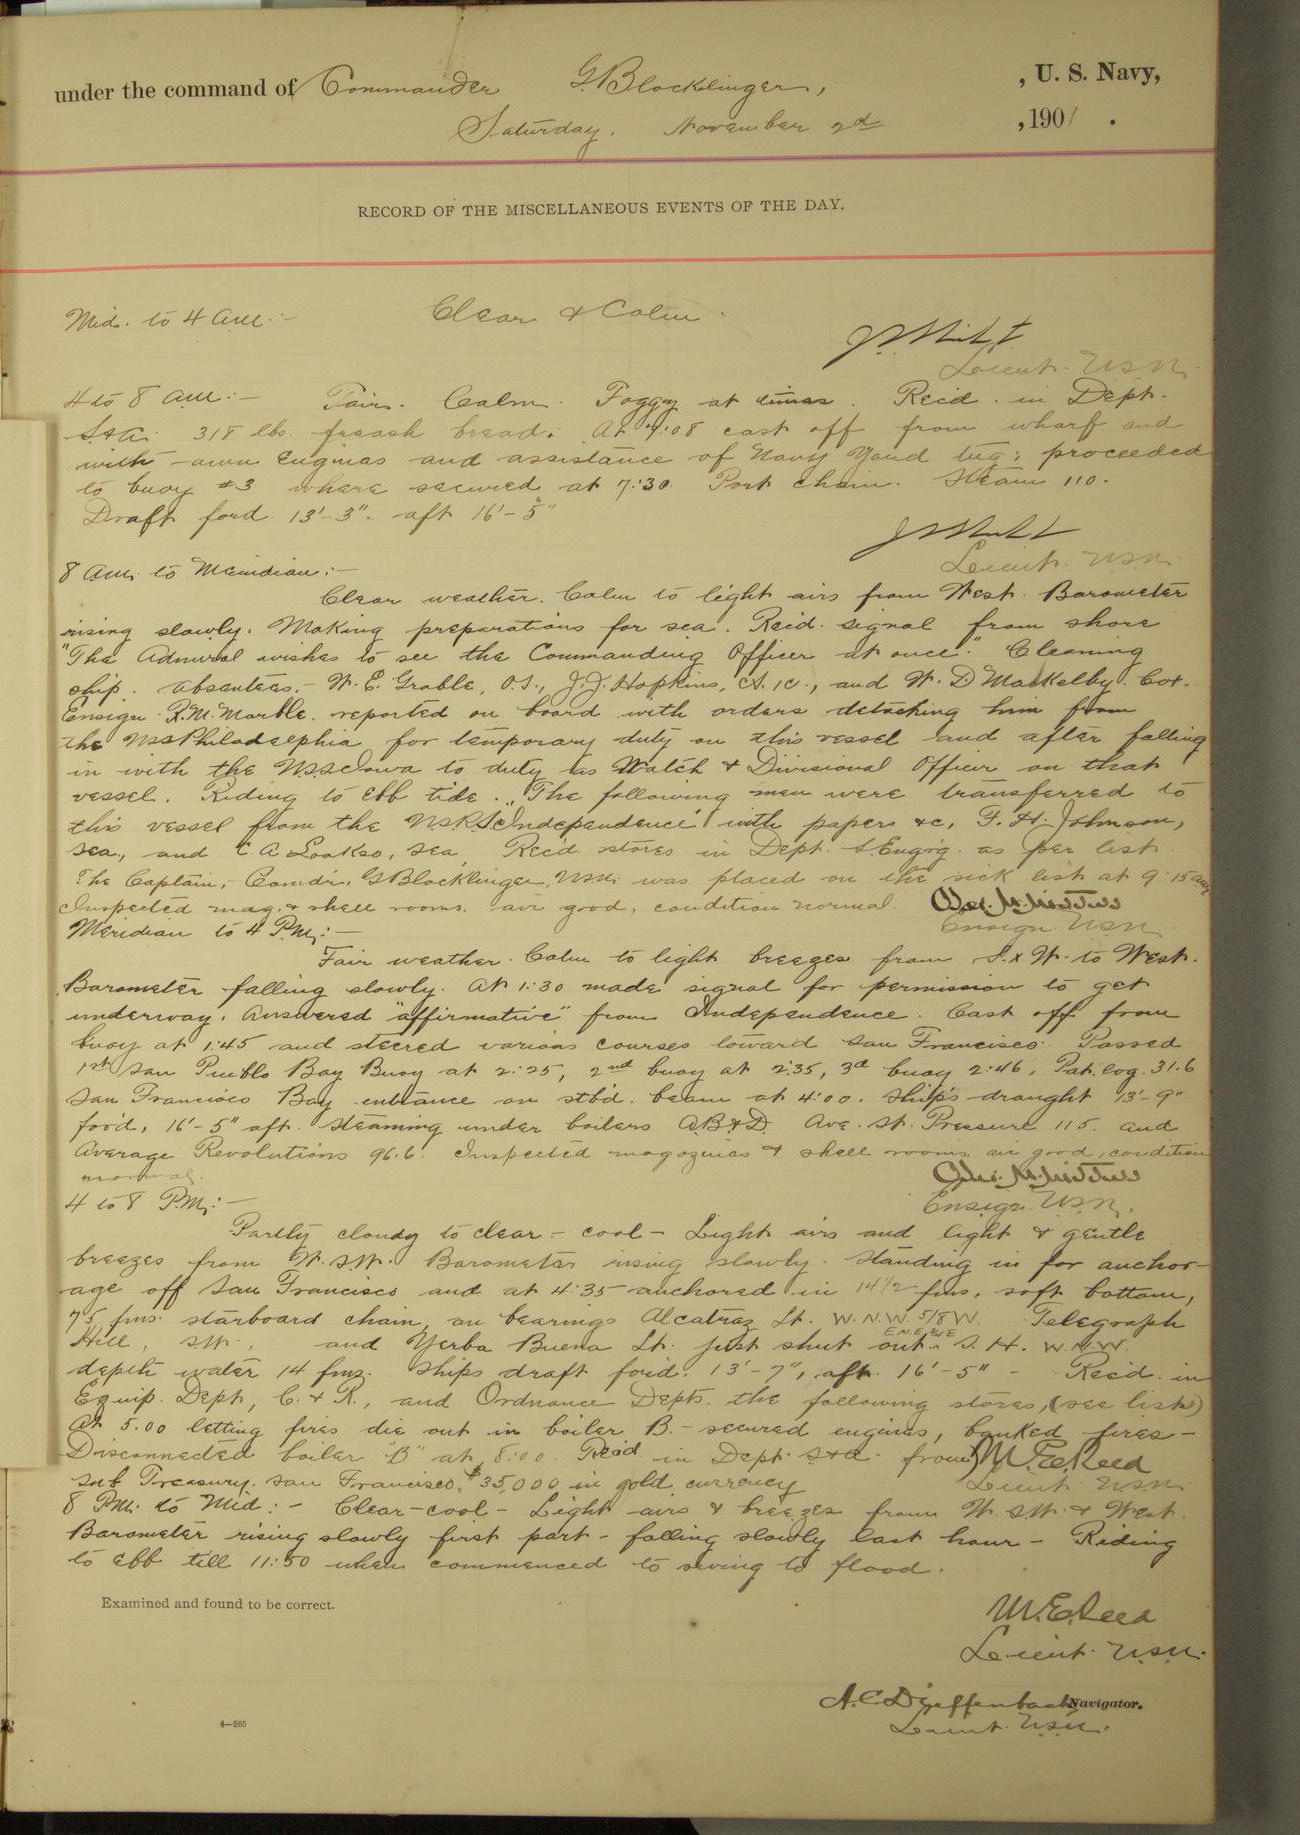 under the command of Commander G. Blocklinger, , U. S. Navy,
Saturday. November 2d , 1901 .
RECORD OF THE MISCELLANEOUS EVENTS OF THE DAY.
Mid. to 4 am:- Clear & Calm.
Lieut. U.S.N.
4 to 8 am:- Fair. Calm. Foggy at times. Rec'd. in Dept.
S&A. 318 lbs. freash bread. At 7:08 cast off from wharf and
with own Engines and assistance of Navy Yard tug; proceeded
to buoy #3 where secured at 7:30. Port chain. Steam 110.
Draft ford. 13'-3". aft 16'-5"
Lieut. U.S.N.
8 am. to Meridian:-
Clear weather. Calm to light airs from West. Barometer
rising slowly. Making preparations for sea. Rec'd. signal from shore
"The Admiral wishes to see the Commanding Officer at once." Cleaning
ship. Absentees.- W. E. Groble, O.S., J. J. Hopkins, C.P., and W. D. Maskelby. Cox.
Ensign R. M. Marble. reported on board with orders detaching him from
the USS Philadelphia for temporary duty on this vessel and after falling
in with the USS Iowa to duty as Watch & Divisional Officer on that
vessel. Riding to Ebb tide. The following men were transferred to
this vessel from the "USRS Independence" with papers &c, F. H. Johnson,
Sea., and C. A. Laakso, Sea, Rec'd. stores in Dept. S. Eng'g. as per list.
The Captain,- Comd'r. G Blocklinger, USN. was placed on the sick list at 9:15 am
Inspected mag. & shell rooms. air good, condition normal.
Meridian to 4 P.M.:- Ensign U.S.N.
Fair weather. Calm to light breezes from S.x W. to West.
Barometer falling slowly. At 1:30 made signal for permission to get
underway. Answered "affirmative" from Independence. Cast off from
buoy at 1:45 and steered various courses toward San Francisco. Passed
1st San Pueblo Bay Buoy at 2:25, 2nd buoy at 2:35, 3d buoy 2:46. Pat. log. 31.6
San Francisco Bay entrance on stbd. beam at 4:00. Ship's draught 13'-9"
for'd, 16'-5" aft. Steaming under boilers A.B.&D. Ave. St. Pressure 115. and
Average Revolutions 96.6. Inspected magazines & shell rooms air good, condition
normal.
4 to 8 P.M.:- Ensign U.S.N.
Partly cloudy to clear - cool - Light airs and light & gentle
breezes from W.SW. Barometer rising slowly. Standing in for anchor-
age off San Francisco and at 4:35 anchored in 14 1/2 fms, soft bottom,
75 fms. starboard chain, on bearings Alcatraz Lt. W.N.W. 5/8 W. Telegraph
Hill, SW. and Yerba Buena Lt. just shut out E.N.E. 3/4 E S. H. W.N.W.
depth water 14 fms. Ships draft for'd. 13'-7", aft. 16'-5" - Rec'd. in
Equip. Dept, C. & R., and Ordnance Depts. the following stores, (see lists)
At 5.00 letting fires die out in boiler B.- secured engines, banked fires -
Disconnected boiler "B" at 8:00. Rec'd in Dept. S&A. from M. E. Reed
Sub Treasury. San Francisco, $35,000 in gold currency Lieut. U.S.N.
8 P.M. to Mid:- Clear - cool - Light airs & breezes from W.SW. & West.
Barometer rising slowly first part - falling slowly last hour - Riding
to ebb till 11:50 when commenced to swing to flood.
Examined and found to be correct.
M. E. Reed
Lieut. U.S.N.
A. C. Dieffenbach Navigator.
Lieut. U.S.N.
4—265